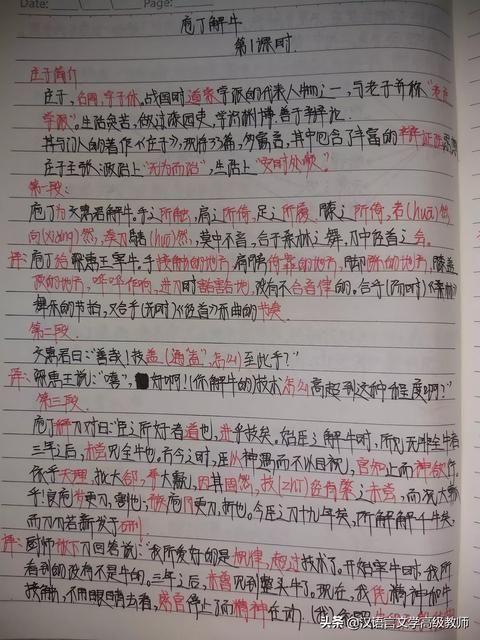 Date:
Page:
庖丁解牛
第1课时.
庄子简介
庄子,名周,字子休.战国时道家学派的代表人物之一,与老子并称"老庄
学派".生活贫苦,做过漆园吏,学识渊博,善于辩论.
其与门人的著作《庄子》,现存33篇,多寓言,其中包含了丰富的辩证法思想
庄子主张:政治上"无为而治",生活上"安时处顺".
第一段:
庖丁为文惠君解牛.手之所触,肩之所倚,足之所履,膝之所倚,砉(huā)然
向(xiǎng)然,奏刀騞(huō)然,莫中不音,合于桑林之舞,乃中经首之会.
译:庖丁给梁惠王宰牛.手接触的地方,肩膀倚靠的地方,脚踩的地方,膝盖
顶的地方,哗哗作响,进刀时豁豁地,没有不合音律的.合乎(汤时)《桑林》
舞乐的节拍,又合乎(尧时)《经首》乐曲的节奏.
第二段
文惠君曰:"善哉!技盖(通"盍",怎么)至此乎?"
译:梁惠王说:"嘻",好啊!(你解牛的)技术怎么高超到这种程度啊?"
第三段
庖丁释刀对曰:"臣之所好者道也,进乎技矣.始臣之解牛时,所见无非全牛者
三年之后,未尝见全牛也.方今之时,臣以神遇而不以目视,官知止而神欲行.
依乎天理,批大郤,导大窾,因其固然,技(之竹)经肯綮之未尝,而况大軱
乎!良庖岁更刀,割也;族庖月更刀,折也.今臣之刀十九年矣,所解解千牛矣,
而刀刃若新发于硎!
译:厨师放下刀回答说:"我所爱好的是规律,超过技术了.开始宰牛时,我所
看到的没有不是牛的.三年之后,未曾见到整头牛了.现在,我凭精神和牛
接触,不用眼睛去看,感官停止了而精神在动.
头条 @汉语言文学高级教师